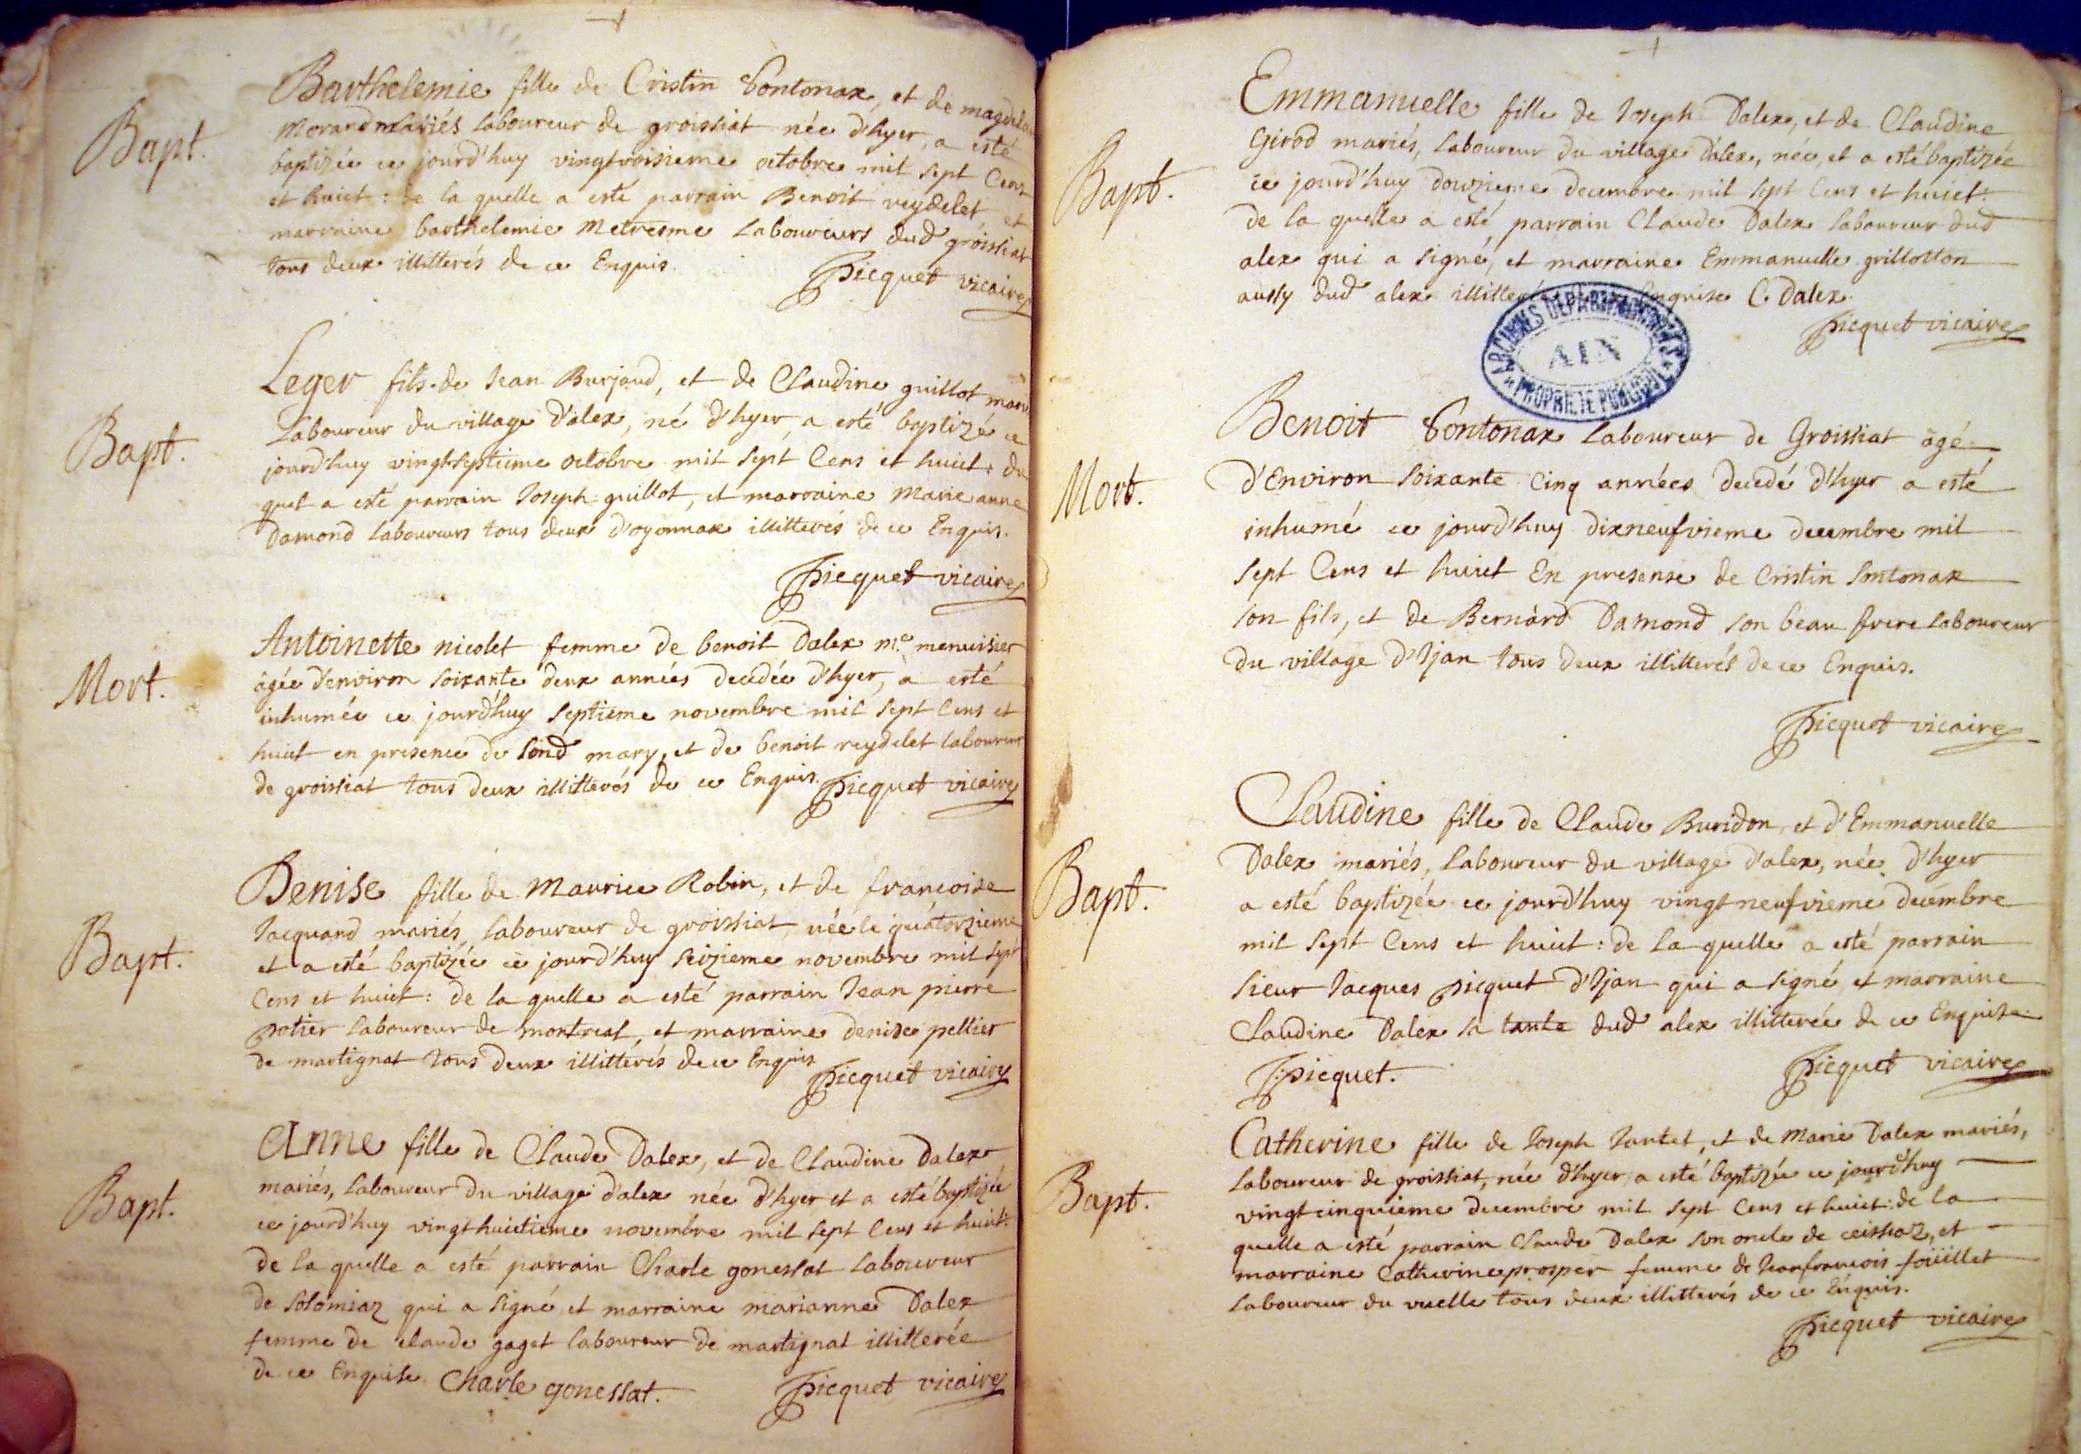 Bapt.
Barthelemie fille de Cristin Sontonax, et de magdelaine
Morand mariés laboureur de groissiat née d'hyer, a esté
baptizée ce jourd'huy vingtroisieme octobre mil sept Cens
et huict : de la quelle a esté parrain Benoit reydelet et
marraine barthelemie Metresme Laboureurs dud groissiat
tous deux illitterés de ce Enquis.
Picquet vicaire
Bapt.
Leger fils de Jean Burjoud, et de Claudine guillot mariés
Laboureur du village d'alex, né d'hyer, a esté baptizé ce
jourd'huy vingtseptieme octobre mil sept Cens et huict : du
quel a esté parrain Joseph guillot, et marraine Marie anne
Damond laboureurs tous deux d'oyonnax illitterés de ce Enquis.
Picquet vicaire
Mort.
Antoinette nicolet femme de benoit Dalex me. menuisier
âgée d'environ soixante deux années decedée d'hyer, a esté
inhumée ce jourd'huy septieme novembre mil sept Cens et
huict en presence de sond mary, et de benoit reydelet laboureur
de groissiat tous deux illitterés de ce Enquis. Picquet vicaire
Bapt.
Denise fille de Maurice Robin, et de francoise
Jacquand mariés, laboureur de groissiat née le quatorzieme
et a esté baptizée ce jourd'huy seizieme novembre mil sept
Cens et huict : de la quelle a esté parrain Jean pierre
potier laboureur de montreal, et marraine denise peltier
de martignat tous deux illitterés de ce Enquis
Picquet vicaire
Bapt.
Anne fille de Claude Dalex, et de Claudine Dalex
mariés, laboureur du village d'alex née d'hyer et a esté baptizée
ce jourd'huy vingthuictieme novembre mil sept Cens et huict :
de la quelle a esté parrain Charle gonessat laboureur
de solomiaz qui a signé et marraine marianne Dalex
femme de claude gaget laboureur de martignat illitterée
de ce Enquise Charle gonessat. Picquet vicaire
Bapt.
Emmanuelle fille de Joseph Dalex, et de Claudine
Girod mariés, laboureur du village d'alex, née, et a esté baptizée
ce jourd'huy douzieme decembre mil sept Cens et huict :
de la quelle a esté parrain Claude Dalex laboureur dud
alex qui a signé, et marraine Emmanuelle grillotton
aussy dud alex Enquise C. Dalex.
Picquet vicaire
ARCHIVES DEPARTEMENTALES
AIN
PROPRIETE PUBLIQUE
Mort.
Benoit Sontonax laboureur de Groissiat âgé
d'Environ soixante cinq années decedé d'hyer a esté
inhumé ce jourd'huy dixneufvieme decembre mil
sept Cens et huict En presense de Cristin Sontonax
son fils, et de Bernard Damond son beau frere laboureur
du village d'Ijan tous deux illitterés de ce Enquis.
Picquet vicaire
Bapt.
Claudine fille de Claude Buridon, et d'Emmanuelle
Dalex mariés, laboureur du village d'alex, née d'hyer
a esté baptizée ce jourd'huy vingt neufvieme decembre
mil sept Cens et huict : de la quelle a esté parrain
sieur Jacques picquet d'Ijan qui a signé et marraine
Claudine Dalex sa tante dud alex illitterée de ce Enquise.
J. picquet. Picquet vicaire
Bapt.
Catherine fille de Joseph Jantet, et de Marie Dalex mariés,
laboureur de groissiat, née d'hyer, a esté baptizée ce jourd'huy
vingtcinquieme decembre mil sept Cens et huict : de la
quelle a esté parrain Claude Dalex son oncle de ceissiaz, et
marraine Catherine prosper femme de Jeanfrancois foüillet
laboureur du vuelle tous deux illitterés de ce Enquis.
Picquet vicaire